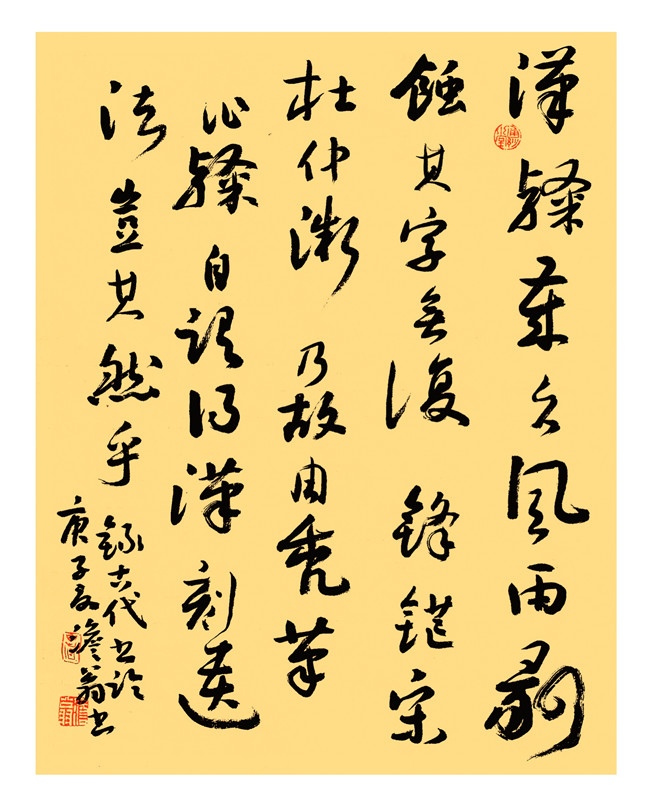 漢隸歲久風雨剝
蝕其字無復鋒鋩宋
杜仲微乃故用禿筆
作隸自謂得漢刻遺
法豈其然乎
錄古代書論
庚子夏澹翁書